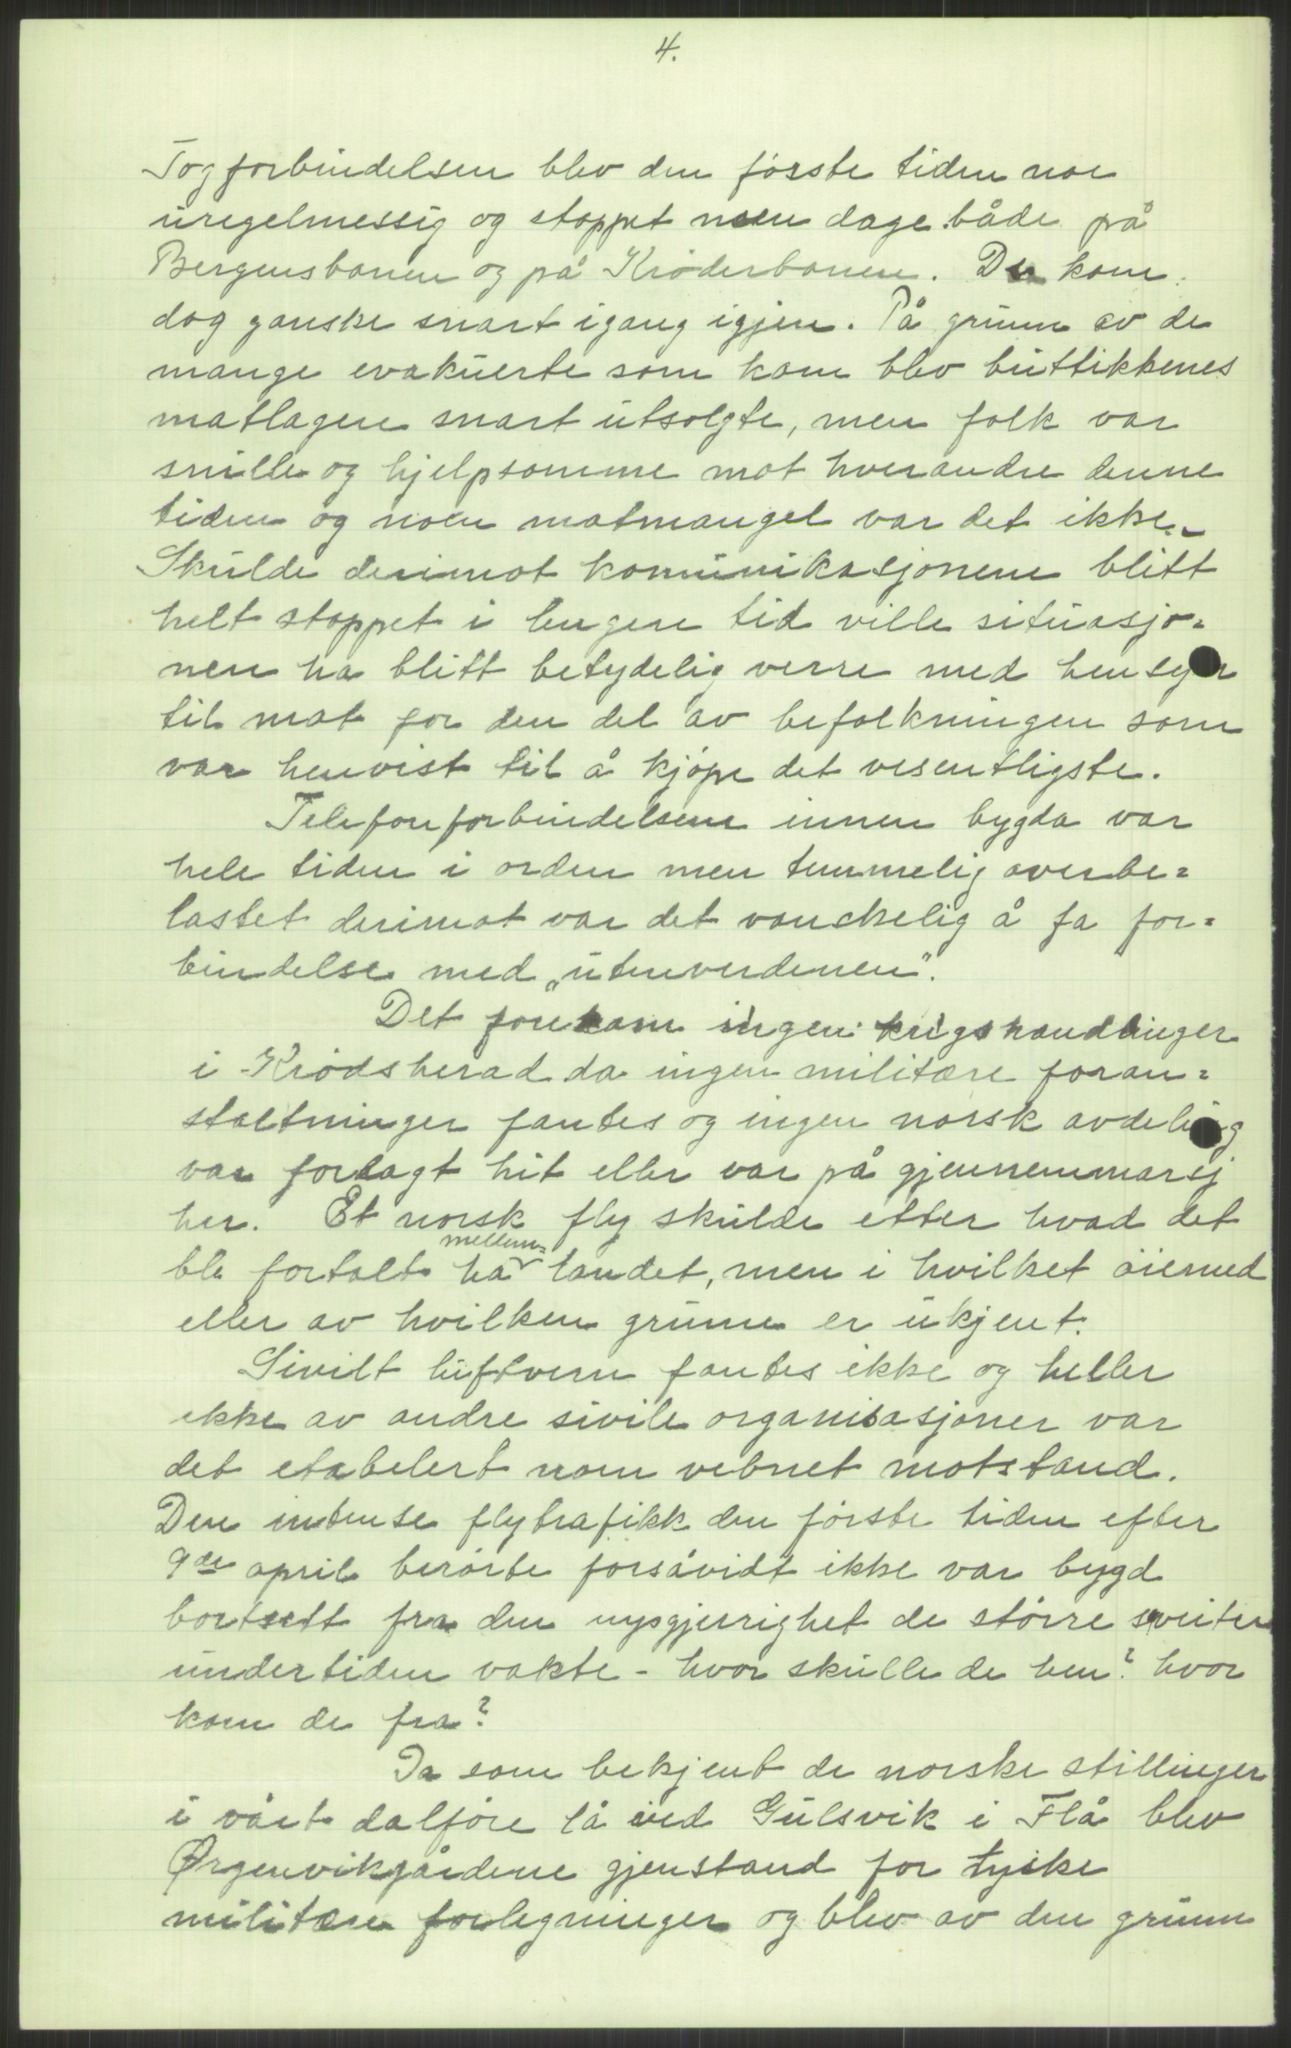 4.
Togforbindelsen blev den første tiden noe
uregelmessig og stoppet noen dage både på
Bergensbanen og på Krøderbanen. De kom
dog ganske snart igang igjen. På grunn av de
mange evakuerte som kom blev buttikkenes
matlagere snart utsolgte, men folk var
snille og hjelpsomme mot hverandre denne
tiden og noen matmangel var det ikke.
Skulde derimot komunikasjonene blitt
helt stoppet i lengere tid ville situasjo=
nen ha blitt betydelig verre med hensyn
til mat for den del av befolkningen som
var henvist til å kjøpe det vesentligste.
Telefonforbindelsene innen bygda var
hele tiden i orden men temmelig overbe=
lastet derimot var det vanskelig å fa for=
bindelse med „utenverdenen".
Det forekom ingen krigshandlinger
i Krødsherad da ingen militære foran=
staltninger fantes og ingen norsk avdeling
var forlagt hit eller var på gjennemmarsj
her. Et norsk fly skulde etter hvad det
ble fortalt ha mellem= landet, men i hvilket øiemed
eller av hvilken grunn er ukjent.
Sivilt luftvern fantes ikke og heller
ikke av andre sivile organisasjoner var
det etabelert noen vebnet motstand.
Den intense flytrafikk den første tiden efter
9de april berørte forsåvidt ikke vår bygd
bortsett fra den nysgjerrighet de større
undertiden vakte - hvor skulle de hen? hvor
kom de fra?
Da som bekjent de norske stillinger
i vårt dalføre lå ved Gulsvik i Flå blev
Ørgenvikgårdene gjenstand for tyske
militære forlegninger og blev av den grunn